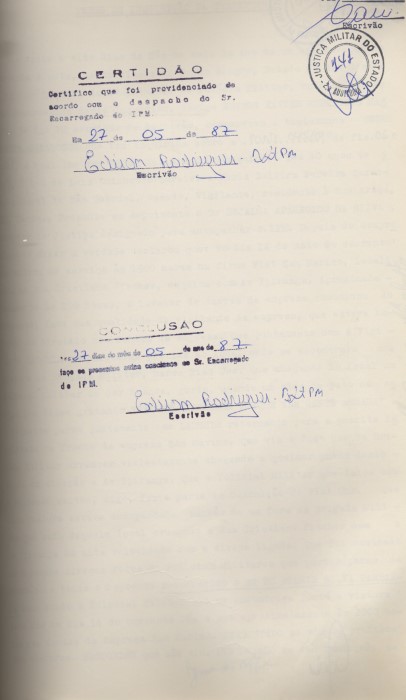 Escrivão
JUSTIÇA MILITAR DO ESTADO
241
CERTIDÃO
Certifico que foi providenciado de
acordo com o despacho do Sr.
Encarregado do IPM.
Em 27 de 05 de 87
Edison Rodrigues
Escrivão
CONCLUSAO
27 dias do mês de 05 do ano de 87.
faço os presentes autos conclusos ao Sr. Encarregado
do IPM.
Edison Rodrigues
Escrivão